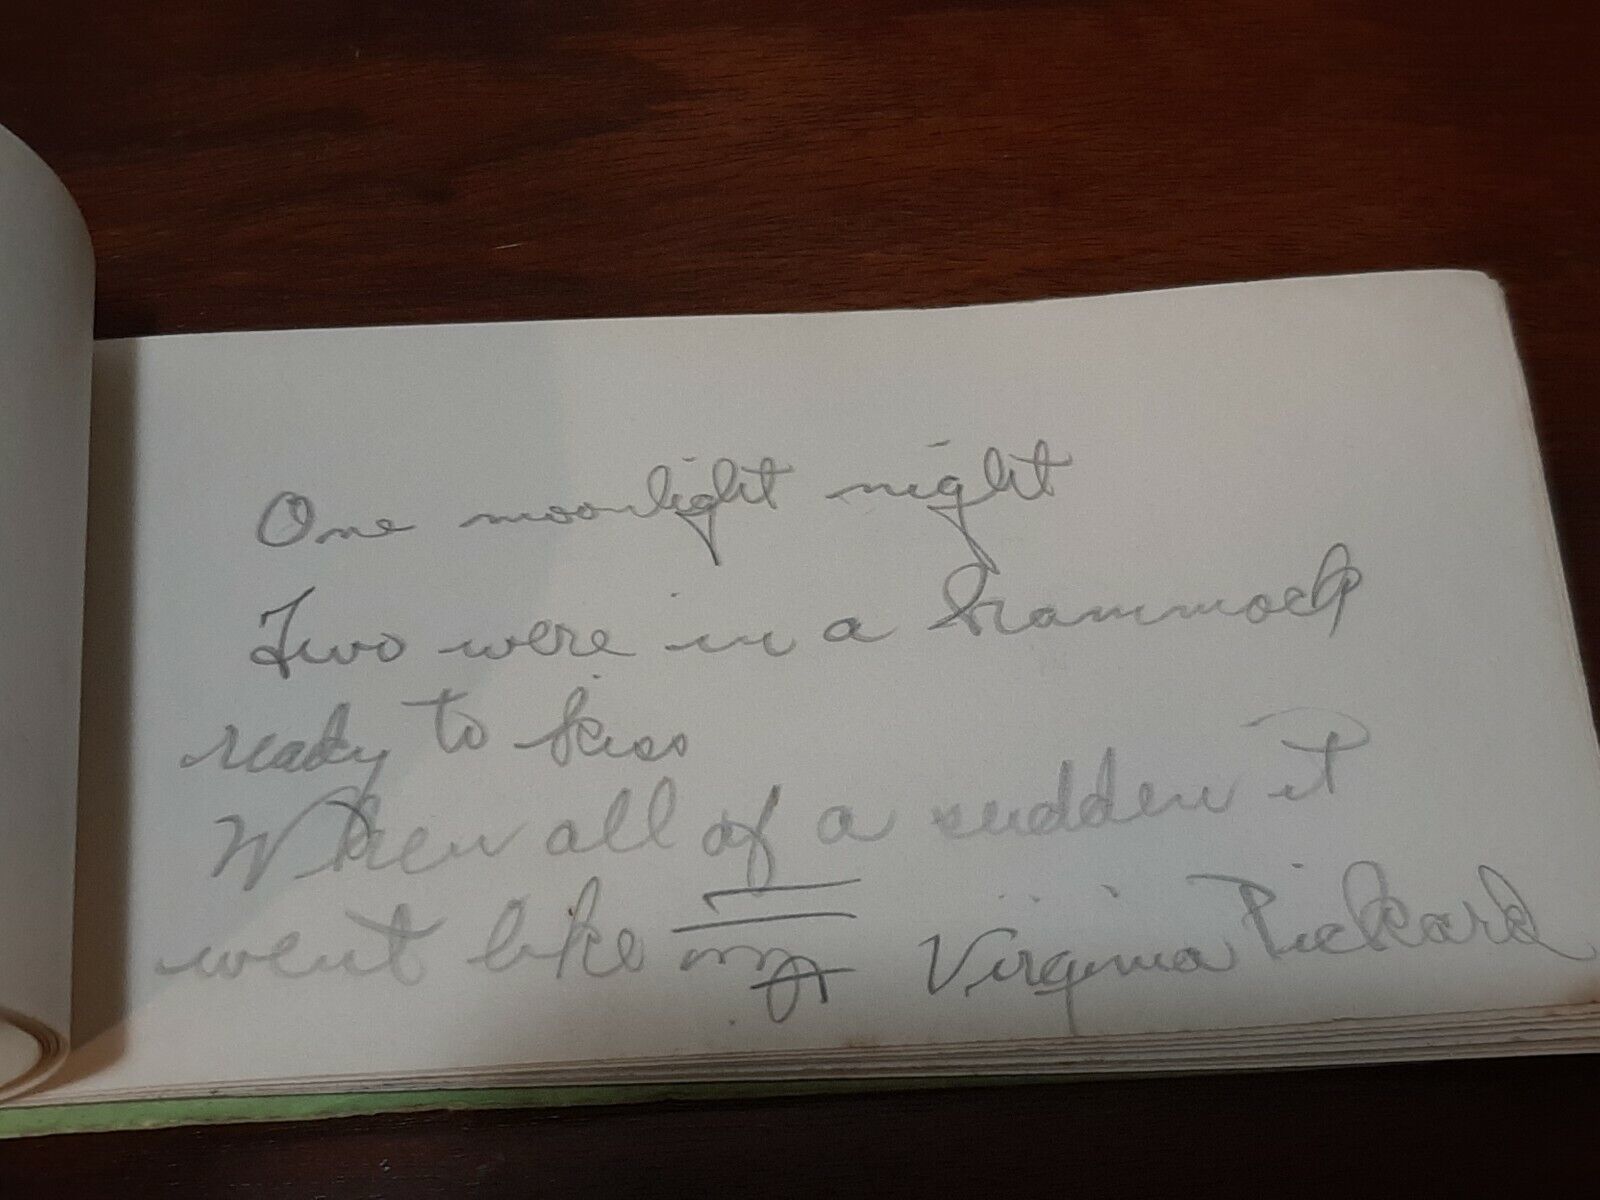 One moonlight night
Two were in a hammock
ready to kiss
When all of a sudden it
went like this Virginia Pickard